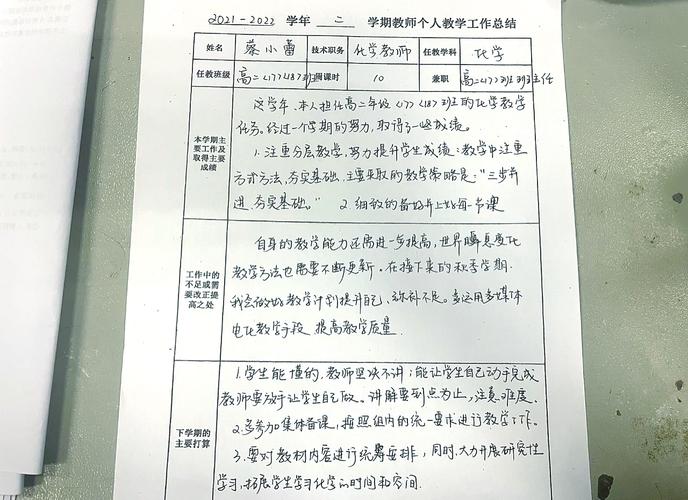 2021-2022 学年 二 学期教师个人教学工作总结
姓名 蔡小蕾 技术职务 化学教师 任教学科 化学
任教班级 高二<17><18>班 周课时 10 兼职 高二<17>班班主任
本学期主要工作及取得主要成绩
这学年、本人担任高二年级<17><18>班的化学教学
任务。经过一个学期的努力,取得了一些成绩。
1. 注重分层教学,努力提升学生成绩:教学中注重
方式方法、夯实基础、主要采取的教学策略是:"三步并
进、夯实基础。" 2. 细致的备好并上好每一节课
工作中的不足或需要改正提高之处
自身的教学能力还需进一步提高,世界瞬息变化
教学方法也需要不断更新。在接下来的秋季学期.
我会做好教学计划提升自己、弥补不足。多运用多媒体
电化教学手段 提高教学质量.
下学期的主要打算
1. 学生能懂的,教师坚决不讲;能让学生自己动手完成
教师要放手让学生自己做。讲解要到点为止,注意难度.
2. 多参加集体备课,按照组内的统一要求进行教学工作。
3. 要对教材内容进行统筹安排,同时,大力开展研究性
学习,拓展学生学习化学的时间和空间.